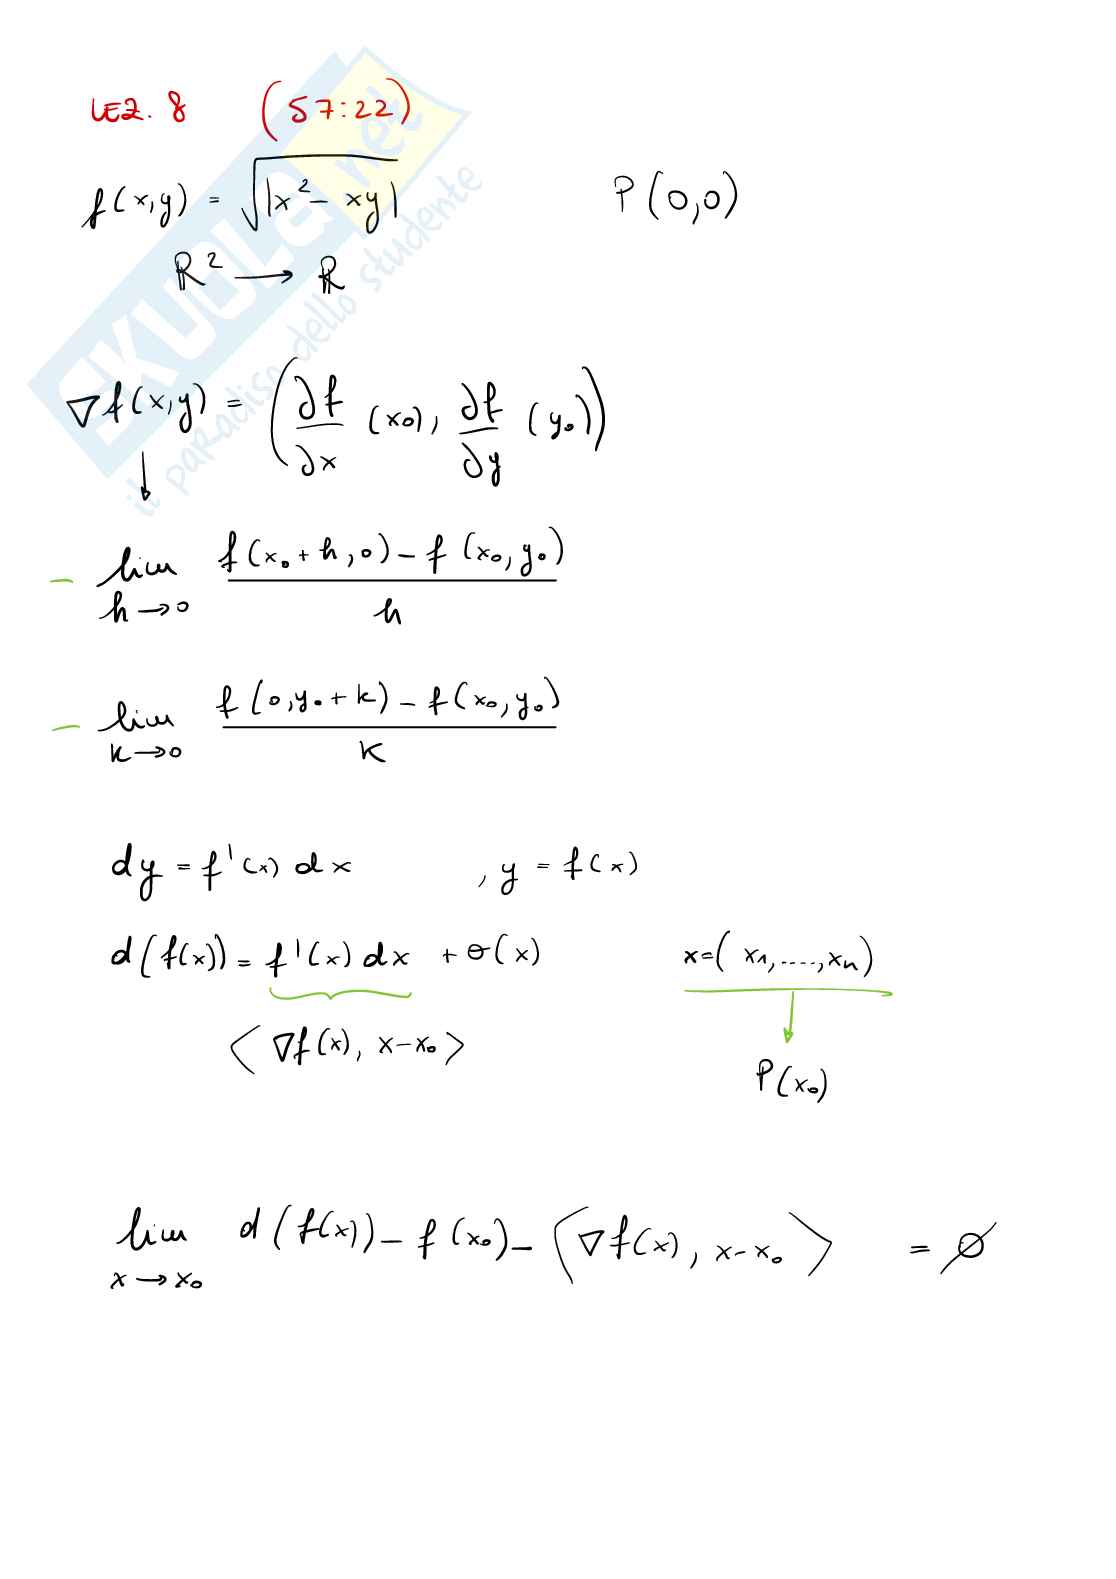 LEZ. 8 (57:22)
f(x,y) = √|x² - xy| P(0,0)
R² → R
∇f(x,y) = (∂f/∂x (x₀), ∂f/∂y (y₀))
- lim h→0 f(x₀+h,0) - f(x₀,y₀) / h
- lim k→0 f(0,y₀+k) - f(x₀,y₀) / k
dy = f'(x) dx , y = f(x)
d(f(x)) = f'(x) dx + σ(x) x=(x₁,....,xₙ)
⟨∇f(x), x-x₀⟩
P(x₀)
lim x→x₀ d(f(x)) - f(x₀) - ⟨∇f(x), x-x₀⟩ = ∅
SKUOLA.net
il paradiso dello studente